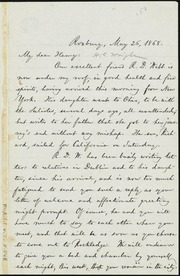 Roxbury, May 25, 1868.
My dear Henry:
Our excellent friend R. D. Webb is
now under my roof, in good health and fine
spirits, having arrived this morning from New
York. His daughter went to Ohio, to be with
the Salisters, several days ago, all unattended,
but writes to her father that she got to her jour-
ney's end without any mishap. The son, Rich-
ard, sailed for California on Saturday.
R. D. W. has been freely writing let-
ters to relatives in Dublin and to his daugh-
ter, since his arrival, and is now too much
fatigued to send you such a reply as your
letter of welcome and affectionate greeting
might prompt. Of course, he and you will
have much to say to each other when you
meet, and that will be as soon as you choose
to come to Rockledge. We will endeavor
to give you a bed and chamber by yourself
each night, this week, that you remain in the city